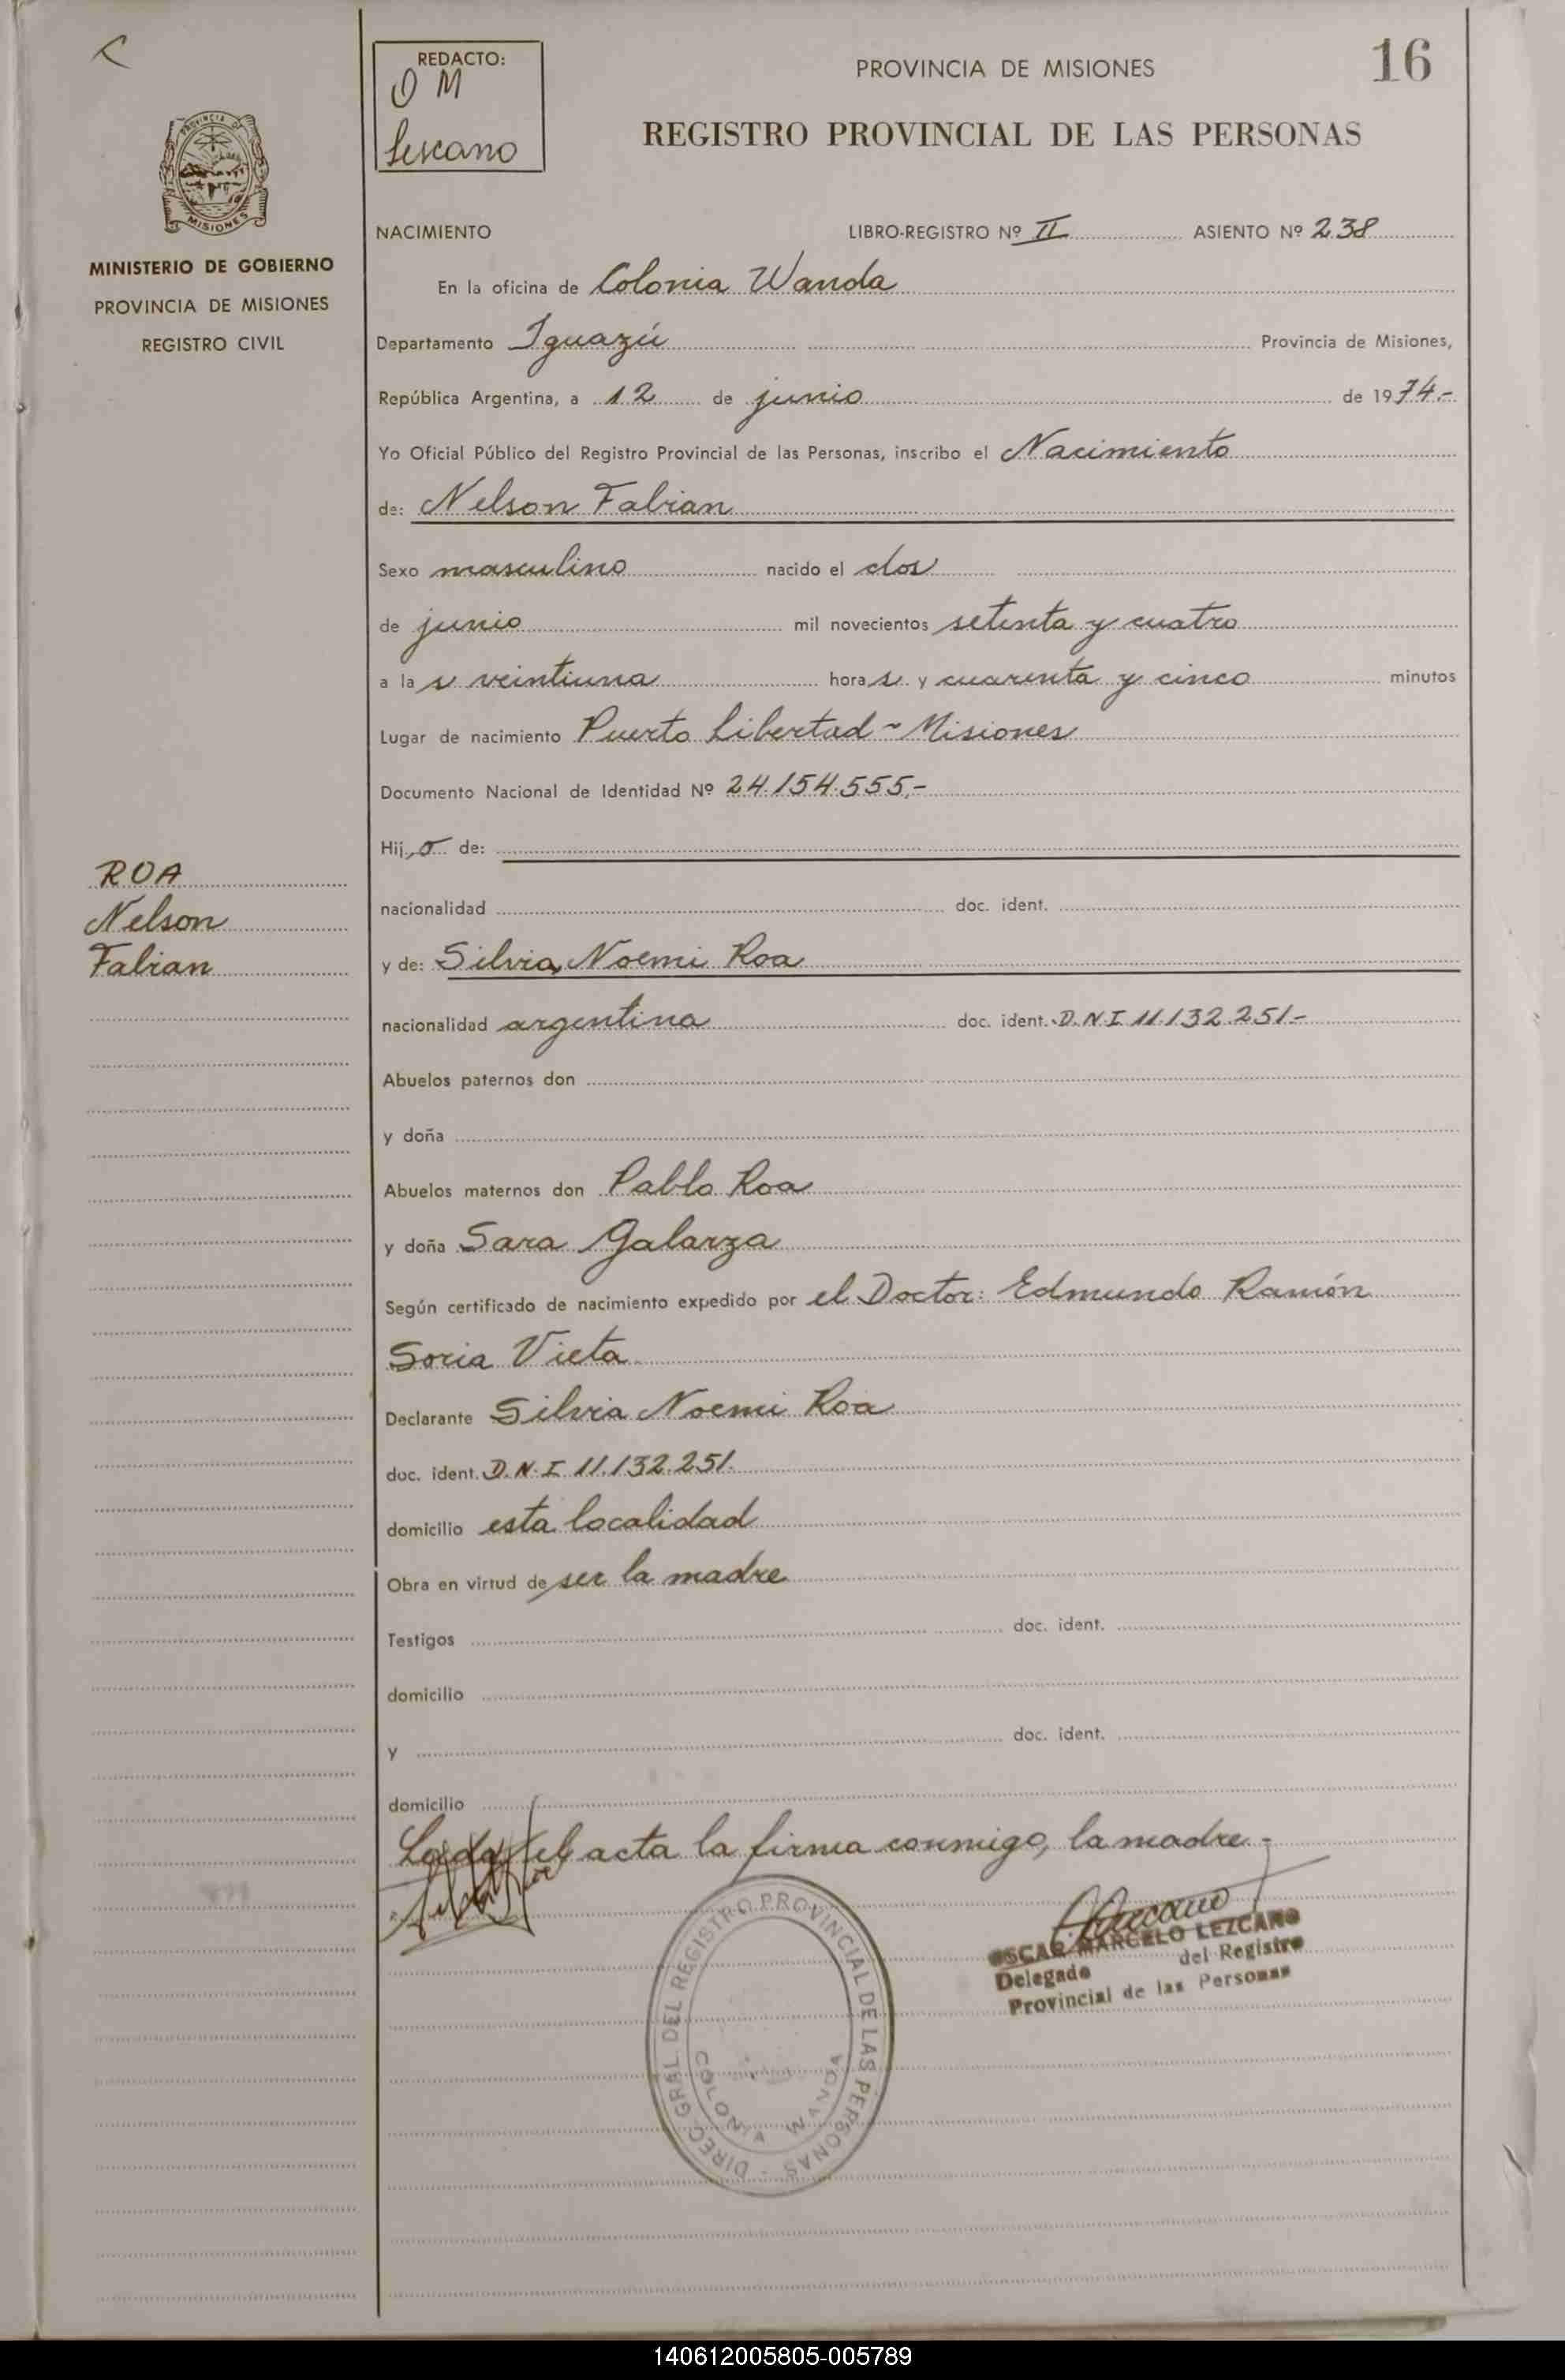 REDACTO:
O M
Lescano
PROVINCIA DE MISIONES
16
REGISTRO PROVINCIAL DE LAS PERSONAS
PROVINCIA DE
MISIONES
MINISTERIO DE GOBIERNO
PROVINCIA DE MISIONES
REGISTRO CIVIL
NACIMIENTO LIBRO-REGISTRO Nº II ASIENTO Nº 238
En la oficina de Colonia Wanda
Departamento Iguazú Provincia de Misiones,
República Argentina, a 12 de junio de 1974.-
Yo Oficial Público del Registro Provincial de las Personas, inscribo el Nacimiento
de: Nelson Fabian
Sexo masculino nacido el dos
de junio mil novecientos setenta y cuatro
a las veintiuna horas y cuarenta y cinco minutos
Lugar de nacimiento Puerto Libertad - Misiones
Documento Nacional de Identidad Nº 24.154.555.-
Hijo de:
ROA
Nelson
Fabian
nacionalidad doc. ident.
y de: Silvia Noemi Roa
nacionalidad argentina doc. ident. D.N.I 11.132.251-
Abuelos paternos don
y doña
Abuelos maternos don Pablo Roa
y doña Sara Galarza
Según certificado de nacimiento expedido por el Doctor: Edmundo Ramón
Soria Vieta
Declarante Silvia Noemi Roa
doc. ident. D.N.I 11.132.251.
domicilio esta localidad
Obra en virtud de ser la madre
Testigos doc. ident.
domicilio
y doc. ident.
domicilio
Leida el acta la firma conmigo, la madre.-
OSCAR MARCELO LEZCANO
Delegado del Registro
Provincial de las Personas
DIREC. GRAL. DEL REGISTRO PROVINCIAL DE LAS PERSONAS -
COLONIA WANDA
140612005805-005789